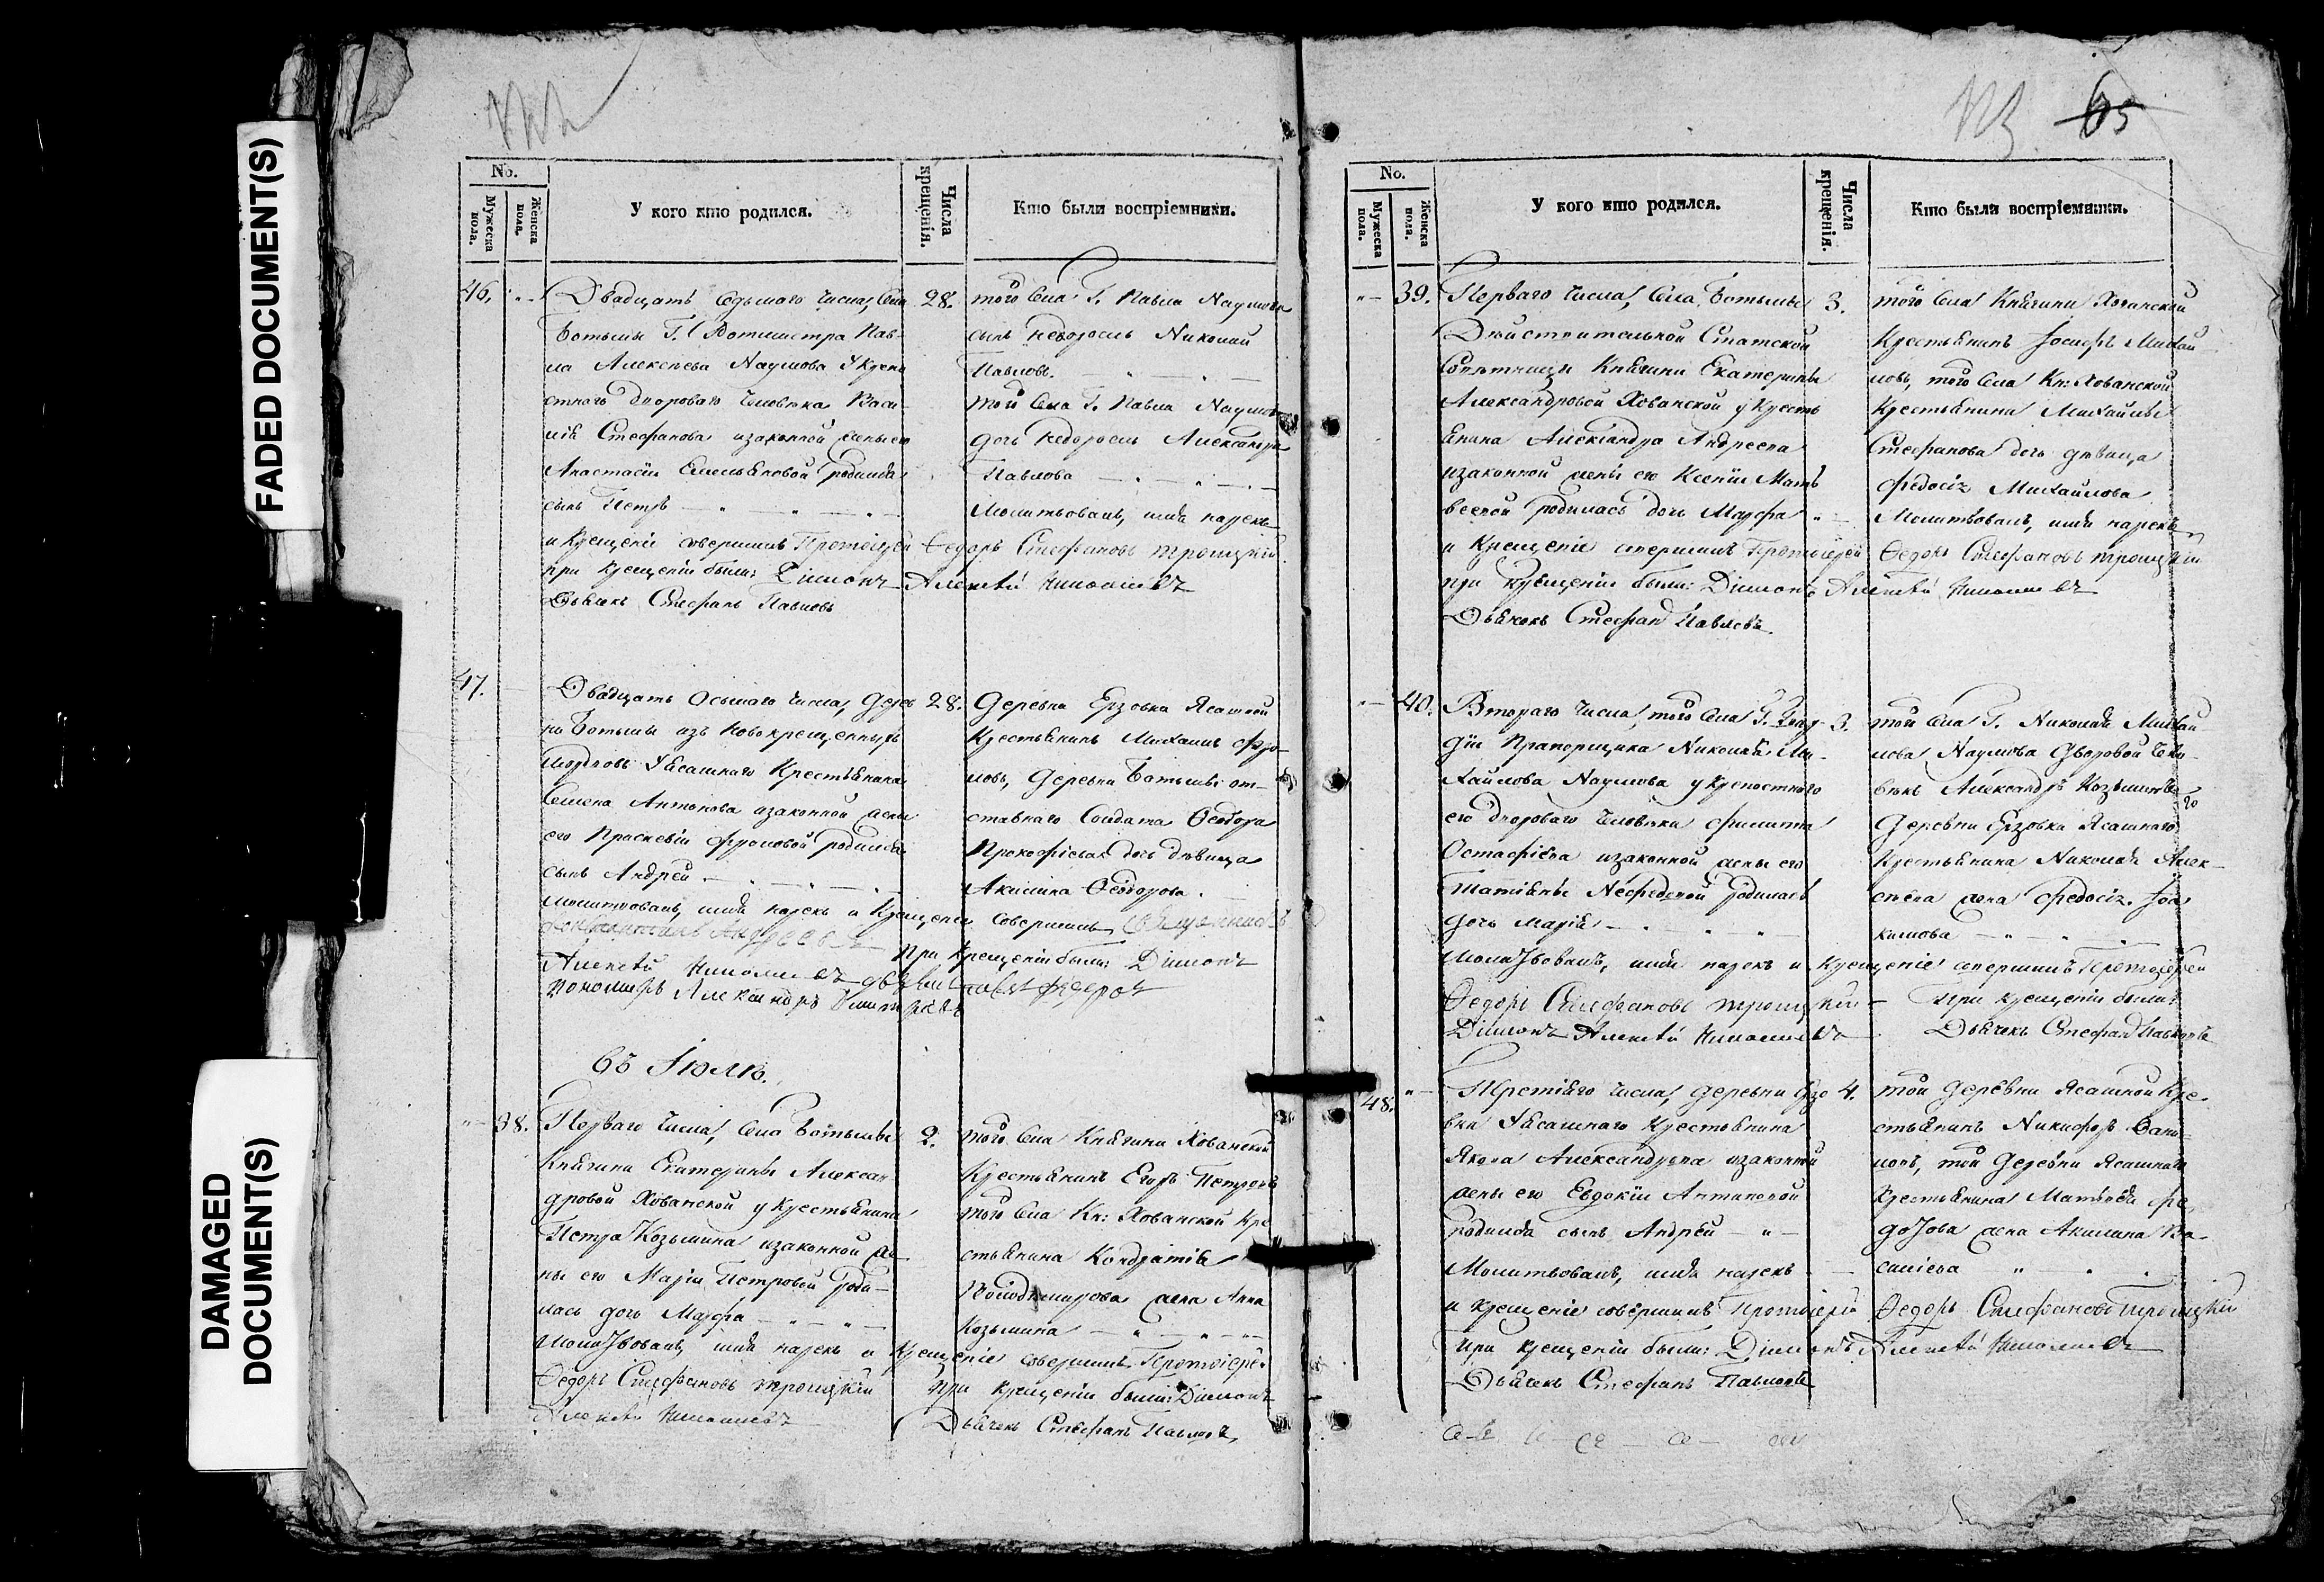 FADED DOCUMENT(S)
DAMAGED
DOCUMENT(S)
No.
Мужеска пола.
Женска пола.
У кого кто родился.
Числа крещенія.
Кто были воспріемники.
46.
Двадцать седьмаго числа, села
Ботьмы Г. Ротмистра Пав-
ла Алексѣева Наумова у крепо
стнаго двороваго человѣка Васи-
лія Стефанова изаконной жены его
Анастасіи Емельяновой родился
сынъ Петръ
28.
того села Г. Павла Наумова
сынъ недоросль Николай
Павловъ.
того села Г. Павла Наумова
дочь недоросль Александра
Павлова
Молитвовалъ, имя нарекъ
и крещеніе совершилъ Протоіерей Федоръ Стефановъ Троицкій
при крещеніи были: Діаконъ Алексѣй
Дьячекъ Стефанъ Павловъ
47.
Двадцать осьмаго числа, дерев
ни Ботьмы изъ новокрещенныхъ
Ясашнаго Крестьянина
Семена Антонова изаконной жены
его Праскевіи Фроловой родился
сынъ Андрей
28.
Деревни Ерзовка Ясашной
Крестьянинъ Михаилъ Фро-
ловъ, деревни Ботьмы от-
ставнаго Солдата Феодора
Прокофьева дочь дѣвица
Акилина Феодорова.
молитвовалъ, имя нарекъ и крещеніе совершилъ Священникъ
Андреевъ при крещеніи были: Діаконъ
Алексѣй
пономарь Александръ
въ Іюлѣ.
38.
Перваго числа, села Ботьмы
Княгини Екатерины Алексан
дровой Хованской у крестьянина
Петра Козьмина изаконной же
ны его Маріи Петровой роди-
лась дочь Марфа
2.
того села Княгини Хованской
Крестьянинъ Егоръ Петровъ
того села Кн: Хованской Кре
стьянина Кондратія
Володимирова жена Анна
Козьмина
молитвовалъ, имя нарекъ и крещеніе совершилъ Протоіерей
Федоръ Стефановъ Троицкій при крещеніи были: Діаконъ
Алексѣй
Дьячекъ Стефанъ Павловъ
65
No.
Мужеска пола.
Женска пола.
У кого кто родился.
Числа крещенія.
Кто были воспріемники.
39.
Перваго числа, села Ботьмы
Дѣйствительной Статской
Совѣтницы Княгини Екатерины
Александровой Хованской у кресть
янина Александра Андреева
изаконной жены его Ксеніи Мат
веевой родилась дочь Марфа
3.
того села Княгини Хованской
Крестьянинъ Іосифъ Михай
ловъ, того села Кн: Хованской
Крестьянина Михайлы
Стефанова дочь дѣвица
Федосія Михайлова
Молитвовалъ, имя нарекъ
и крещеніе совершилъ Протоіерей Федоръ Стефановъ Троицкій
при крещеніи были: Діаконъ Алексѣй
Дьячекъ Стефанъ Павловъ.
40.
Втораго числа, того села Г. Гвар
діи Прапорщика Николая Ми-
хайлова Наумова у крепостнаго
его двороваго человѣка Филипа
Остафіева изаконной жены его
Татіяны Нефедовой родилась
дочь Марія
3.
того села Г. Николая Михай-
лова Наумова дворовой чело-
вѣкъ Александръ Козьминъ
Деревни Ерзовка Ясашнаго
Крестьянина Николая Алек-
сѣева жена Федосія Іоа
кимова
молитвовалъ, имя нарекъ и крещеніе совершилъ Протоіерей
Федоръ Стефановъ Троицкій При крещеніи были:
Діаконъ Алексѣй Дьячекъ Стефанъ Павловъ
48.
Третьяго числа, деревни Ерзо
вки Ясашнаго Крестьянина
Якова Александрова изаконной
жены его Евдокіи Антиповой
родился сынъ Андрей
4.
той деревни Ясашной Кре-
стьянинъ Никифоръ Дани-
ловъ, той деревни Ясашнаго
Крестьянина Матвѣя Фе
дотова жена Акилина Ва-
силіева
Молитвовалъ, имя нарекъ
и крещеніе совершилъ Протоіерей Федоръ Стефановъ Троицкій
При крещеніи были: Діаконъ Алексѣй
Дьячекъ Стефанъ Павловъ